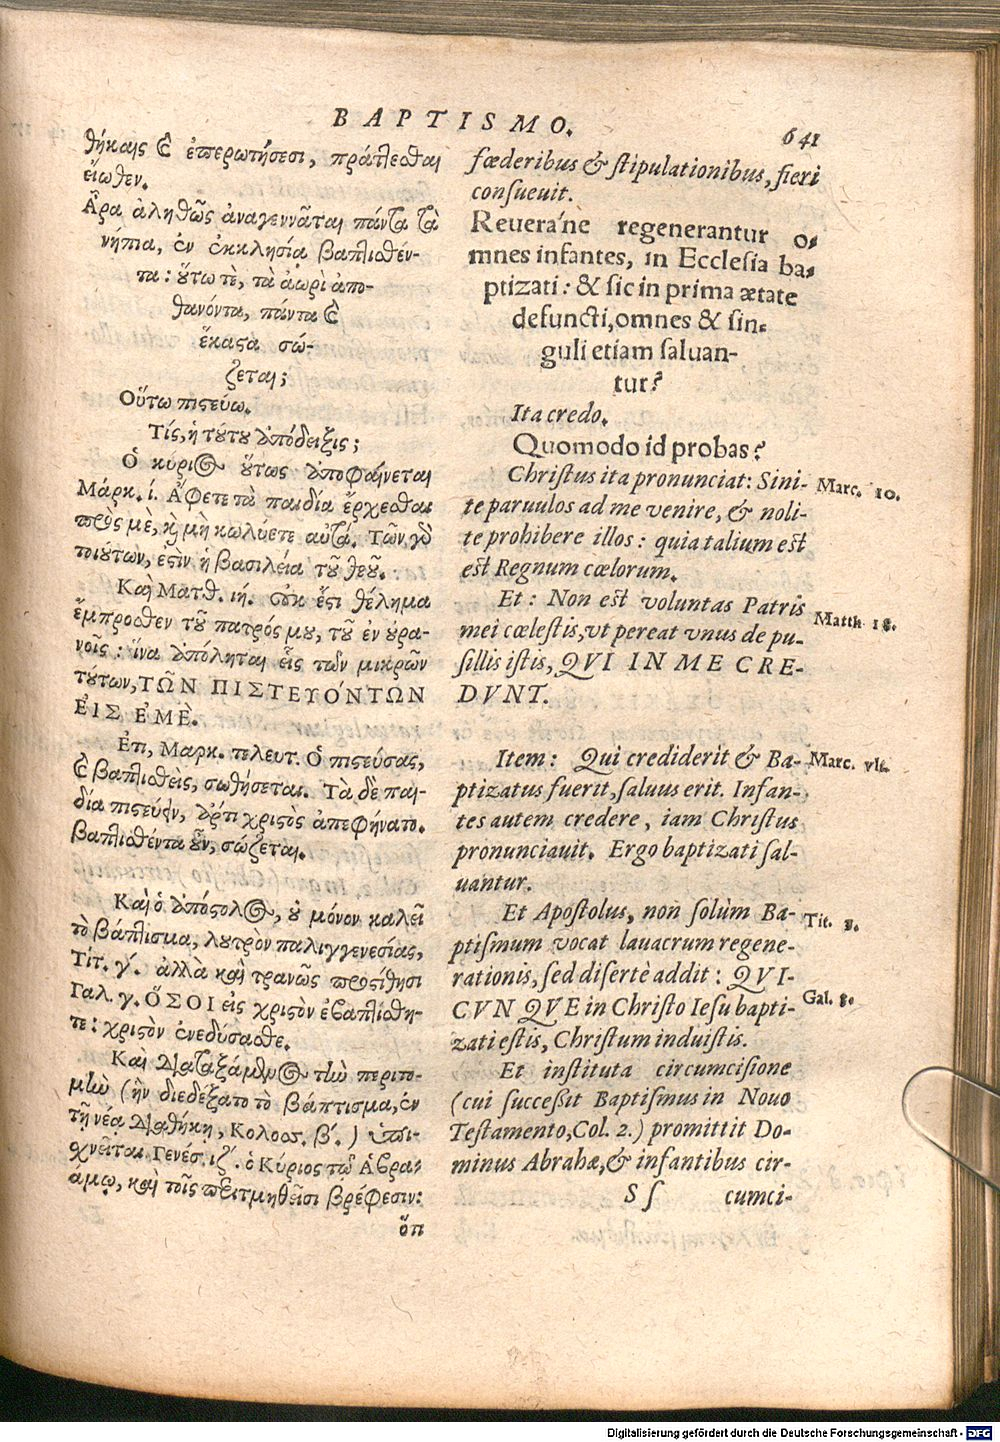 BAPTISMO.
641
θήκαις καὶ ἐπερωτήσεσι, πράττεσθαι
εἴωθεν.
Ἆρα ἀληθῶς ἀναγεννᾶται πάντα τὰ
νήπια, ἐν ἐκκλησίᾳ βαπτισθέν-
τα: οὕτω τὲ, τὰ ἀωρὶ ἀπο-
θανόντα, πάντα καὶ
ἕκαστα σώ-
ζεται;
Οὕτω πιστεύω.
Τίς, ἡ τούτου ἀπόδειξις;
Ὁ κύριος οὕτως ἀποφαίνεται
Μάρκ. ί. Ἄφετε τὰ παιδία ἔρχεσθαι
πρὸς μὲ, καὶ μὴ κωλύετε αὐτά. Τῶν γὰρ
τοιούτων, ἐστὶν ἡ βασιλεία τοῦ θεοῦ.
Καὶ Ματθ. ιή. οὐκ ἔστι θέλημα
ἔμπροσθεν τοῦ πατρός μου, τοῦ ἐν οὐρα-
νοῖς: ἵνα ἀπόληται εἷς τῶν μικρῶν
τούτων, ΤΩ͂Ν ΠΙΣΤΕΥΌΝΤΩΝ
ἘΙΣ ἘΜΈ.
Ἐπι, Μαρκ. τελευτ. Ὁ πιστεύσας,
καὶ βαπτισθεὶς, σωθήσεται. Τὰ δὲ παι-
δία πιστεύειν, ἄρτι χριστὸς ἀπεφήνατο.
βαπτισθέντα οὖν, σώζεται.
Καὶ ὁ ἀπόστολος, οὐ μόνον καλεῖ
τὸ βάπτισμα, λουτρὸν παλιγγενεσίας,
Τίτ. γ΄. ἀλλὰ καὶ τρανῶς προστίθησι
Γαλ. γ. ὍΣΟΙ εἰς χριστὸν ἐβαπτίσθη-
τε: χριστὸν ἐνεδύσασθε.
Καὶ διαταξάμενος τὴν περιτο-
μὴν (ἣν διεδέξατο τὸ βάπτισμα, ἐν
τῇ νέᾳ διαθήκῃ, Κολοσσ. β΄.) ὑπι-
χνεῖται Γενέσ. ιζ΄. ὁ Κύριος τῷ Ἀβρα-
άμῳ, καὶ τοῖς περιτμηθεῖσι βρέφεσιν:
ὅπ
fœderibus & stipulationibus, fieri
consueuit.
Reueráne regenerantur o-
mnes infantes, in Ecclesia ba-
ptizati: & sic in prima ætate
defuncti, omnes & sin-
guli etiam saluan-
tur?
Ita credo.
Quomodo id probas?
Christus ita pronunciat: Sini-
te paruulos ad me venire, & noli-
te prohibere illos: quia talium est
est Regnum cœlorum.
Et: Non est voluntas Patris
mei cœlestis, vt pereat vnus de pu-
sillis istis, QVI IN ME CRE-
DVNT.
Item: Qui crediderit & Ba-
ptizatus fuerit, saluus erit. Infan-
tes autem credere, iam Christus
pronunciauit. Ergo baptizati sal-
uantur.
Et Apostolus, non solùm Ba-
ptismum vocat lauacrum regene-
rationis, sed disertè addit: QVI-
CVNQVE in Christo Iesu bapti-
zati estis, Christum induistis.
Et instituta circumcisione
(cui successit Baptismus in Nouo
Testamento, Col. 2.) promittit Do-
minus Abrahæ, & infantibus cir-
Sſ
cumci-
Marc. 10.
Matth 18.
Marc. vlt.
Tit. 3.
Gal. 3.
Digitalisierung gefördert durch die Deutsche Forschungsgemeinschaft - DFG